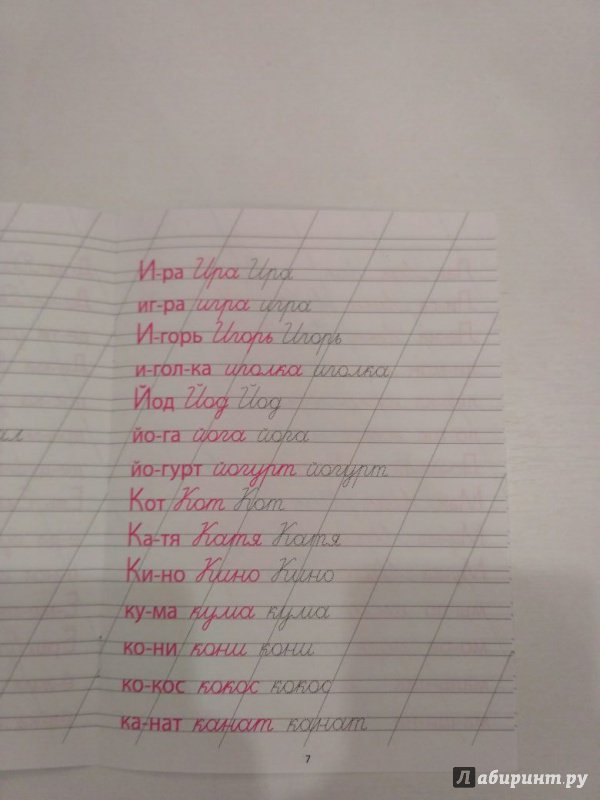 И-ра Ира Ира
иг-ра игра игра
И-горь Игорь Игорь
и-гол-ка иголка иголка
Йод Йод Йод
йо-га йога йога
йо-гурт йогурт йогурт
Кот Кот Кот
Ка-тя Катя Катя
Ки-но Кино Кино
ку-ма кума кума
ко-ни кони кони
ко-кос кокос кокос
ка-нат канат канат
7
Лабиринт.ру